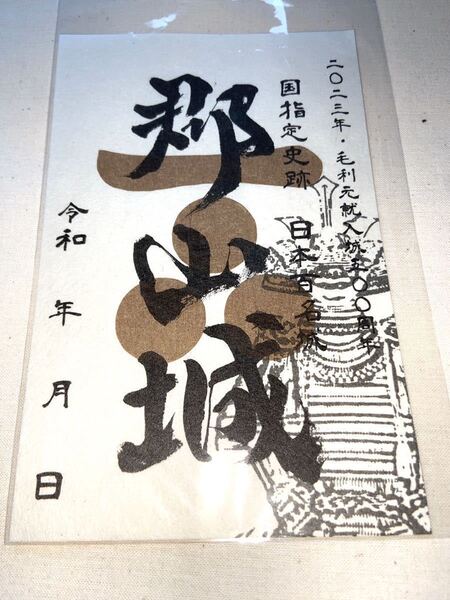 二〇二三年・毛利元就入城五〇〇周年
国指定史跡
日本百名城
郡山城
令和 年 月 日